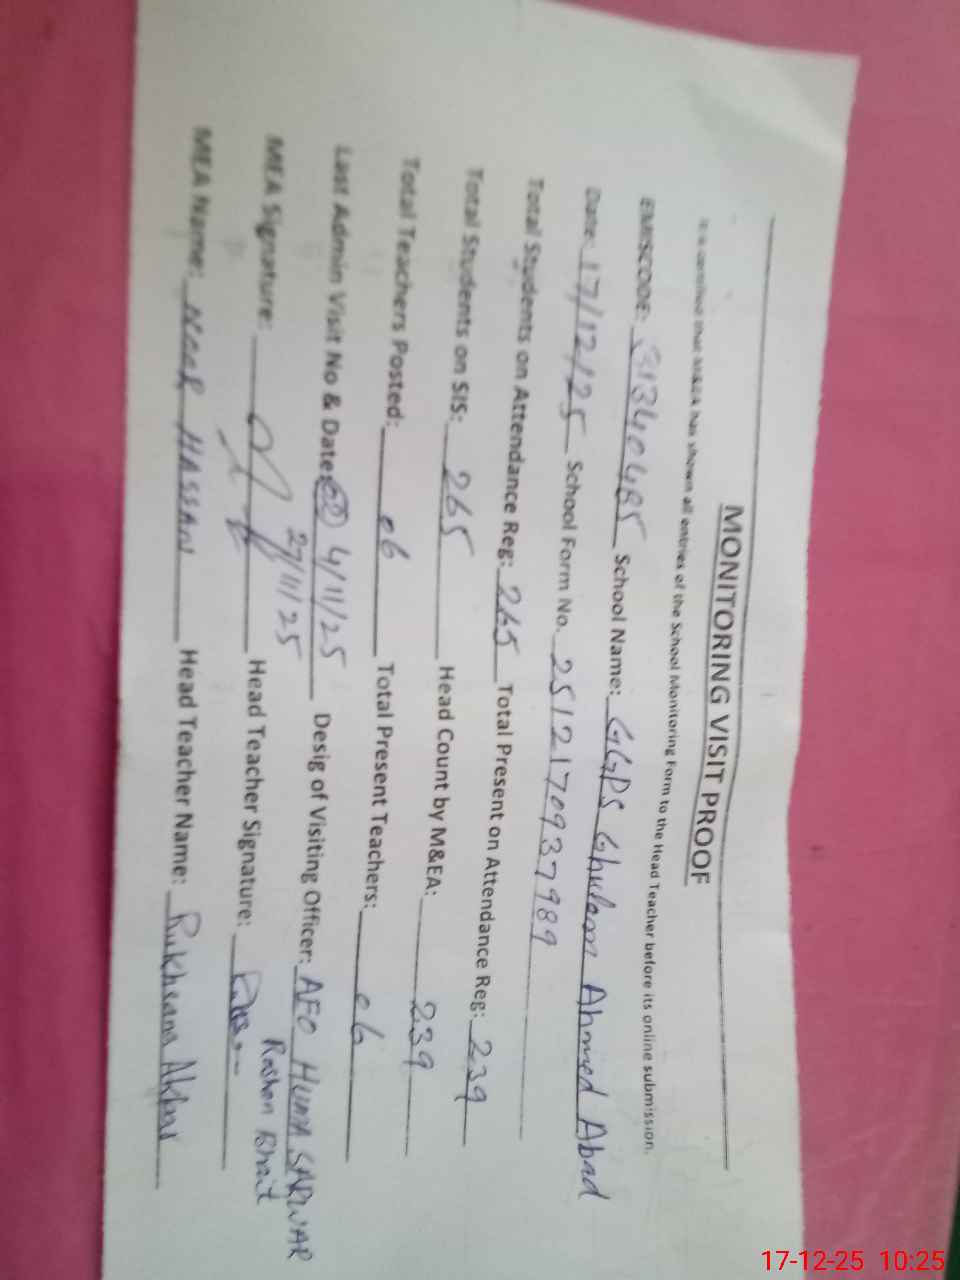 MONITORING VISIT PROOF
It is certified that M&EA has shown all entries of the School Monitoring Form to the Head Teacher before its online submission.
EMISCODE: 31340485 School Name: GGPS Ghulam Ahmed Abad
Date: 17/12/25 School Form No. 2512170937989
Total Students on Attendance Reg: 265 Total Present on Attendance Reg: 239
Total Students on SIS: 265 Head Count by M&EA: 239
Total Teachers Posted: 06 Total Present Teachers: 06
Last Admin Visit No & Date: 02 4/11/25 Desig of Visiting Officer: AEO HUMA SARWAR
27/11/25 Roshan
MEA Signature: Head Teacher Signature:
MEA Name: HASSAN Head Teacher Name: Rukhsana Akhtar
17-12-25 10:25